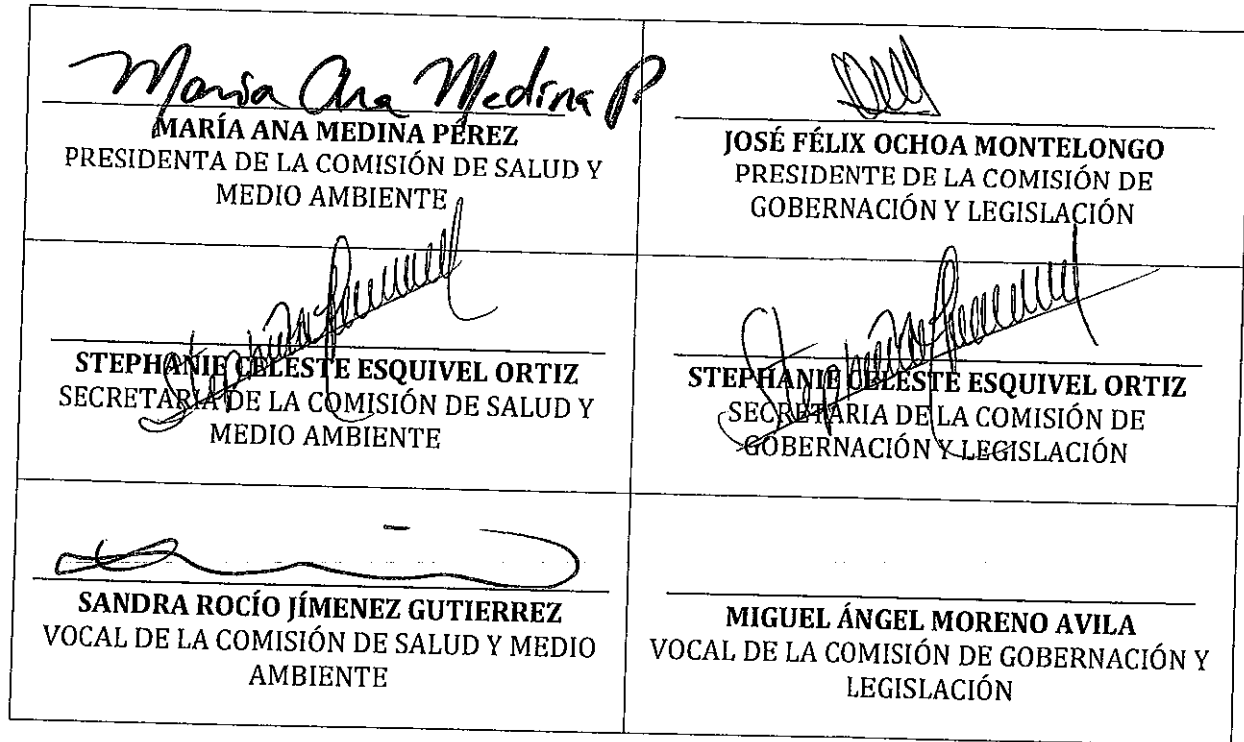 Maria Ana Medina P
MARÍA ANA MEDINA PÉREZ
PRESIDENTA DE LA COMISIÓN DE SALUD Y
MEDIO AMBIENTE
JOSÉ FÉLIX OCHOA MONTELONGO
PRESIDENTE DE LA COMISIÓN DE
GOBERNACIÓN Y LEGISLACIÓN
STEPHANIE CELESTE ESQUIVEL ORTIZ
SECRETARIA DE LA COMISIÓN DE SALUD Y
MEDIO AMBIENTE
STEPHANIE CELESTE ESQUIVEL ORTIZ
SECRETARIA DE LA COMISIÓN DE
GOBERNACIÓN Y LEGISLACIÓN
SANDRA ROCÍO JÍMENEZ GUTIERREZ
VOCAL DE LA COMISIÓN DE SALUD Y MEDIO
AMBIENTE
MIGUEL ÁNGEL MORENO AVILA
VOCAL DE LA COMISIÓN DE GOBERNACIÓN Y
LEGISLACIÓN